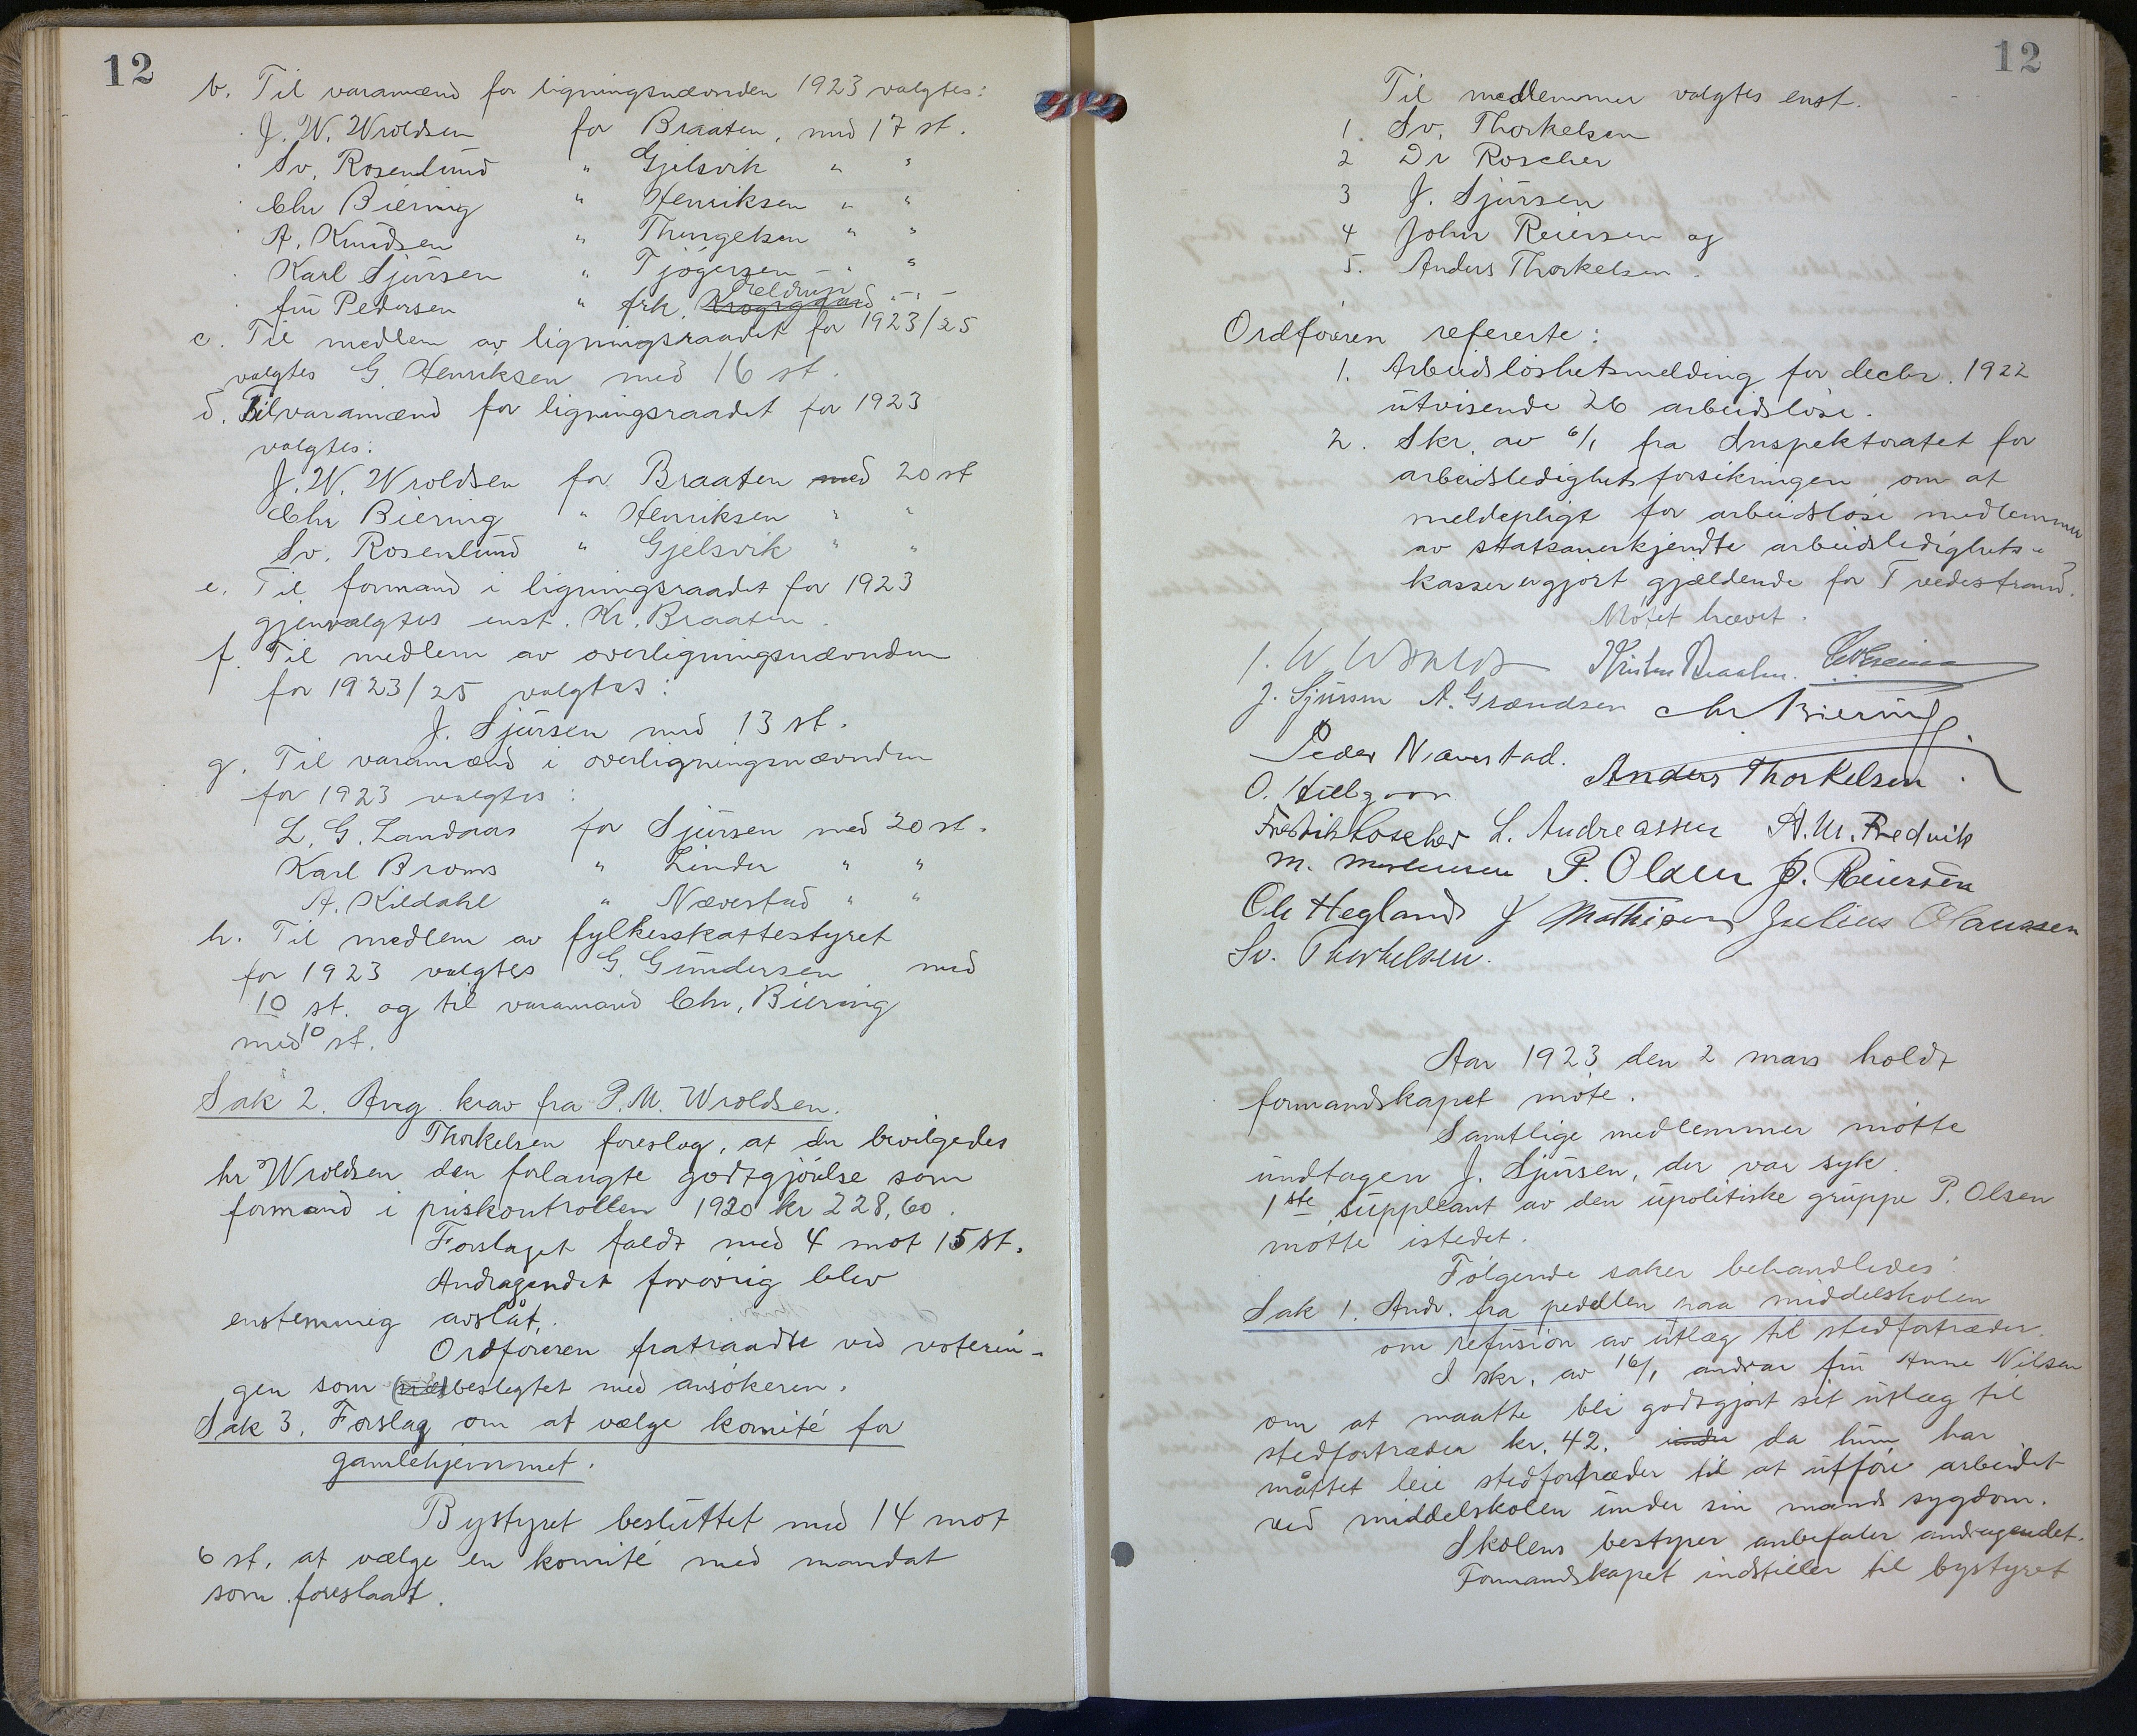 12
b. Til varamænd for ligningsnævnden 1923 valgtes:
J. W. Wroldsen for Braaten, med 17 st.
Sv. Rosenlund " Gjelsvik " "
Chr Biering " Henriksen " "
A. Knudsen " Thingelsen " "
Karl Sjursen " Tjøgersen - " "
fru Pedersen " frk. Krogsgaard Feldrup - " -
c. Til medlem av ligningsraadet for 1923/25
valgtes G. Henriksen med 16 st.
d. Til varamænd for ligningsraadet for 1923
valgtes:
J. W. Wroldsen for Braaten med 20 st
Chr Biering " Henriksen " "
Sv. Rosenlund " Gjelsvik " "
e. Til formand i ligningsraadet for 1923
gjenvalgtes enst. Kr. Braaten.
f. Til medlem av overligningsnævnden
for 1923/25 valgtes:
J. Sjursen med 13 st.
g. Til varamænd i overligningsnævnden
for 1923 valgtes:
L. G. Landaas for Sjursen med 20 st.
Karl Broms " Linder " "
A. Kildahl " Næverstad " "
h. Til medlem av fylkesskattestyret
for 1923 valgtes G. Gundersen med
10 st. og til varamand Chr. Biering
med 10 st.
Sak 2. Ang. krav fra P. M. Wroldsen.
Thorkelsen foreslog, at der bevilgedes
hr Wroldsen den forlangte godtgjörelse som
formand i priskontrollen 1920 kr 228,60.
Forslaget faldt med 4 mot 15 st.
Andragendet forövrig blev
enstemmig avslåt.
Ordföreren fratraadte ved voterin-
gen som (nær) beslegtet med ansökeren.
Sak 3. Forslag om at vælge komité for
gamlehjemmet.
Bystyret besluttet med 14 mot
6 st. at vælge en komité med mandat
som foreslaat.
12
Til medlemmer valgtes enst.
1. Sv. Thorkelsen
2 Dr Roscher
3 J. Sjursen
4 John Reiersen og
5. Anders Thorkelsen.
Ordföreren refererte:
1. Arbeidslöshetsmelding for decbr. 1922
utvisende 26 arbeidslöse.
2. Skr. av 6/1 fra Inspektoratet for
arbeidsledighetsforsikringen om at
meldepligt for arbeidslöse medlemmer
av statsanerkjendte arbeidsledighets-
kasser er gjort gjældende for Tvedestrand.
Mötet hævet.
J. W. Wroldsen Kristen Braaten.
J. Sjursen A. Grændsen Chr Biering
Peder Næverstad. Anders Thorkelsen.
O.
Fredrik Roscher L. Andreassen A. M. Fredvik
M. Mortensen P. Olsen J. Reiersen
Ole Hegland J Mathisen Julius Olaussen
Sv. Thorkelsen.
Aar 1923 den 2 mars holdt
formandskapet möte.
Samtlige medlemmer mötte
undtagen J. Sjursen, der var syk.
1ste suppleant av den upolitiske gruppe P. Olsen
mötte istedet.
Fölgende saker behandledes:
Sak 1. Andr. fra pedellen paa middelskolen
om refusion av utlæg til stedfortræder.
I skr. av 16/1 andrar fru Anne Nilsen
om at maatte bli godtgjort sit utlæg til
stedfortræder kr. 42. under da hun har
måttet leie stedfortræder til at utföre arbeidet
ved middelskolen under sin mands sygdom.
Skolens bestyrer anbefaler andragendet.
Formandskapet indstiller til bystyret